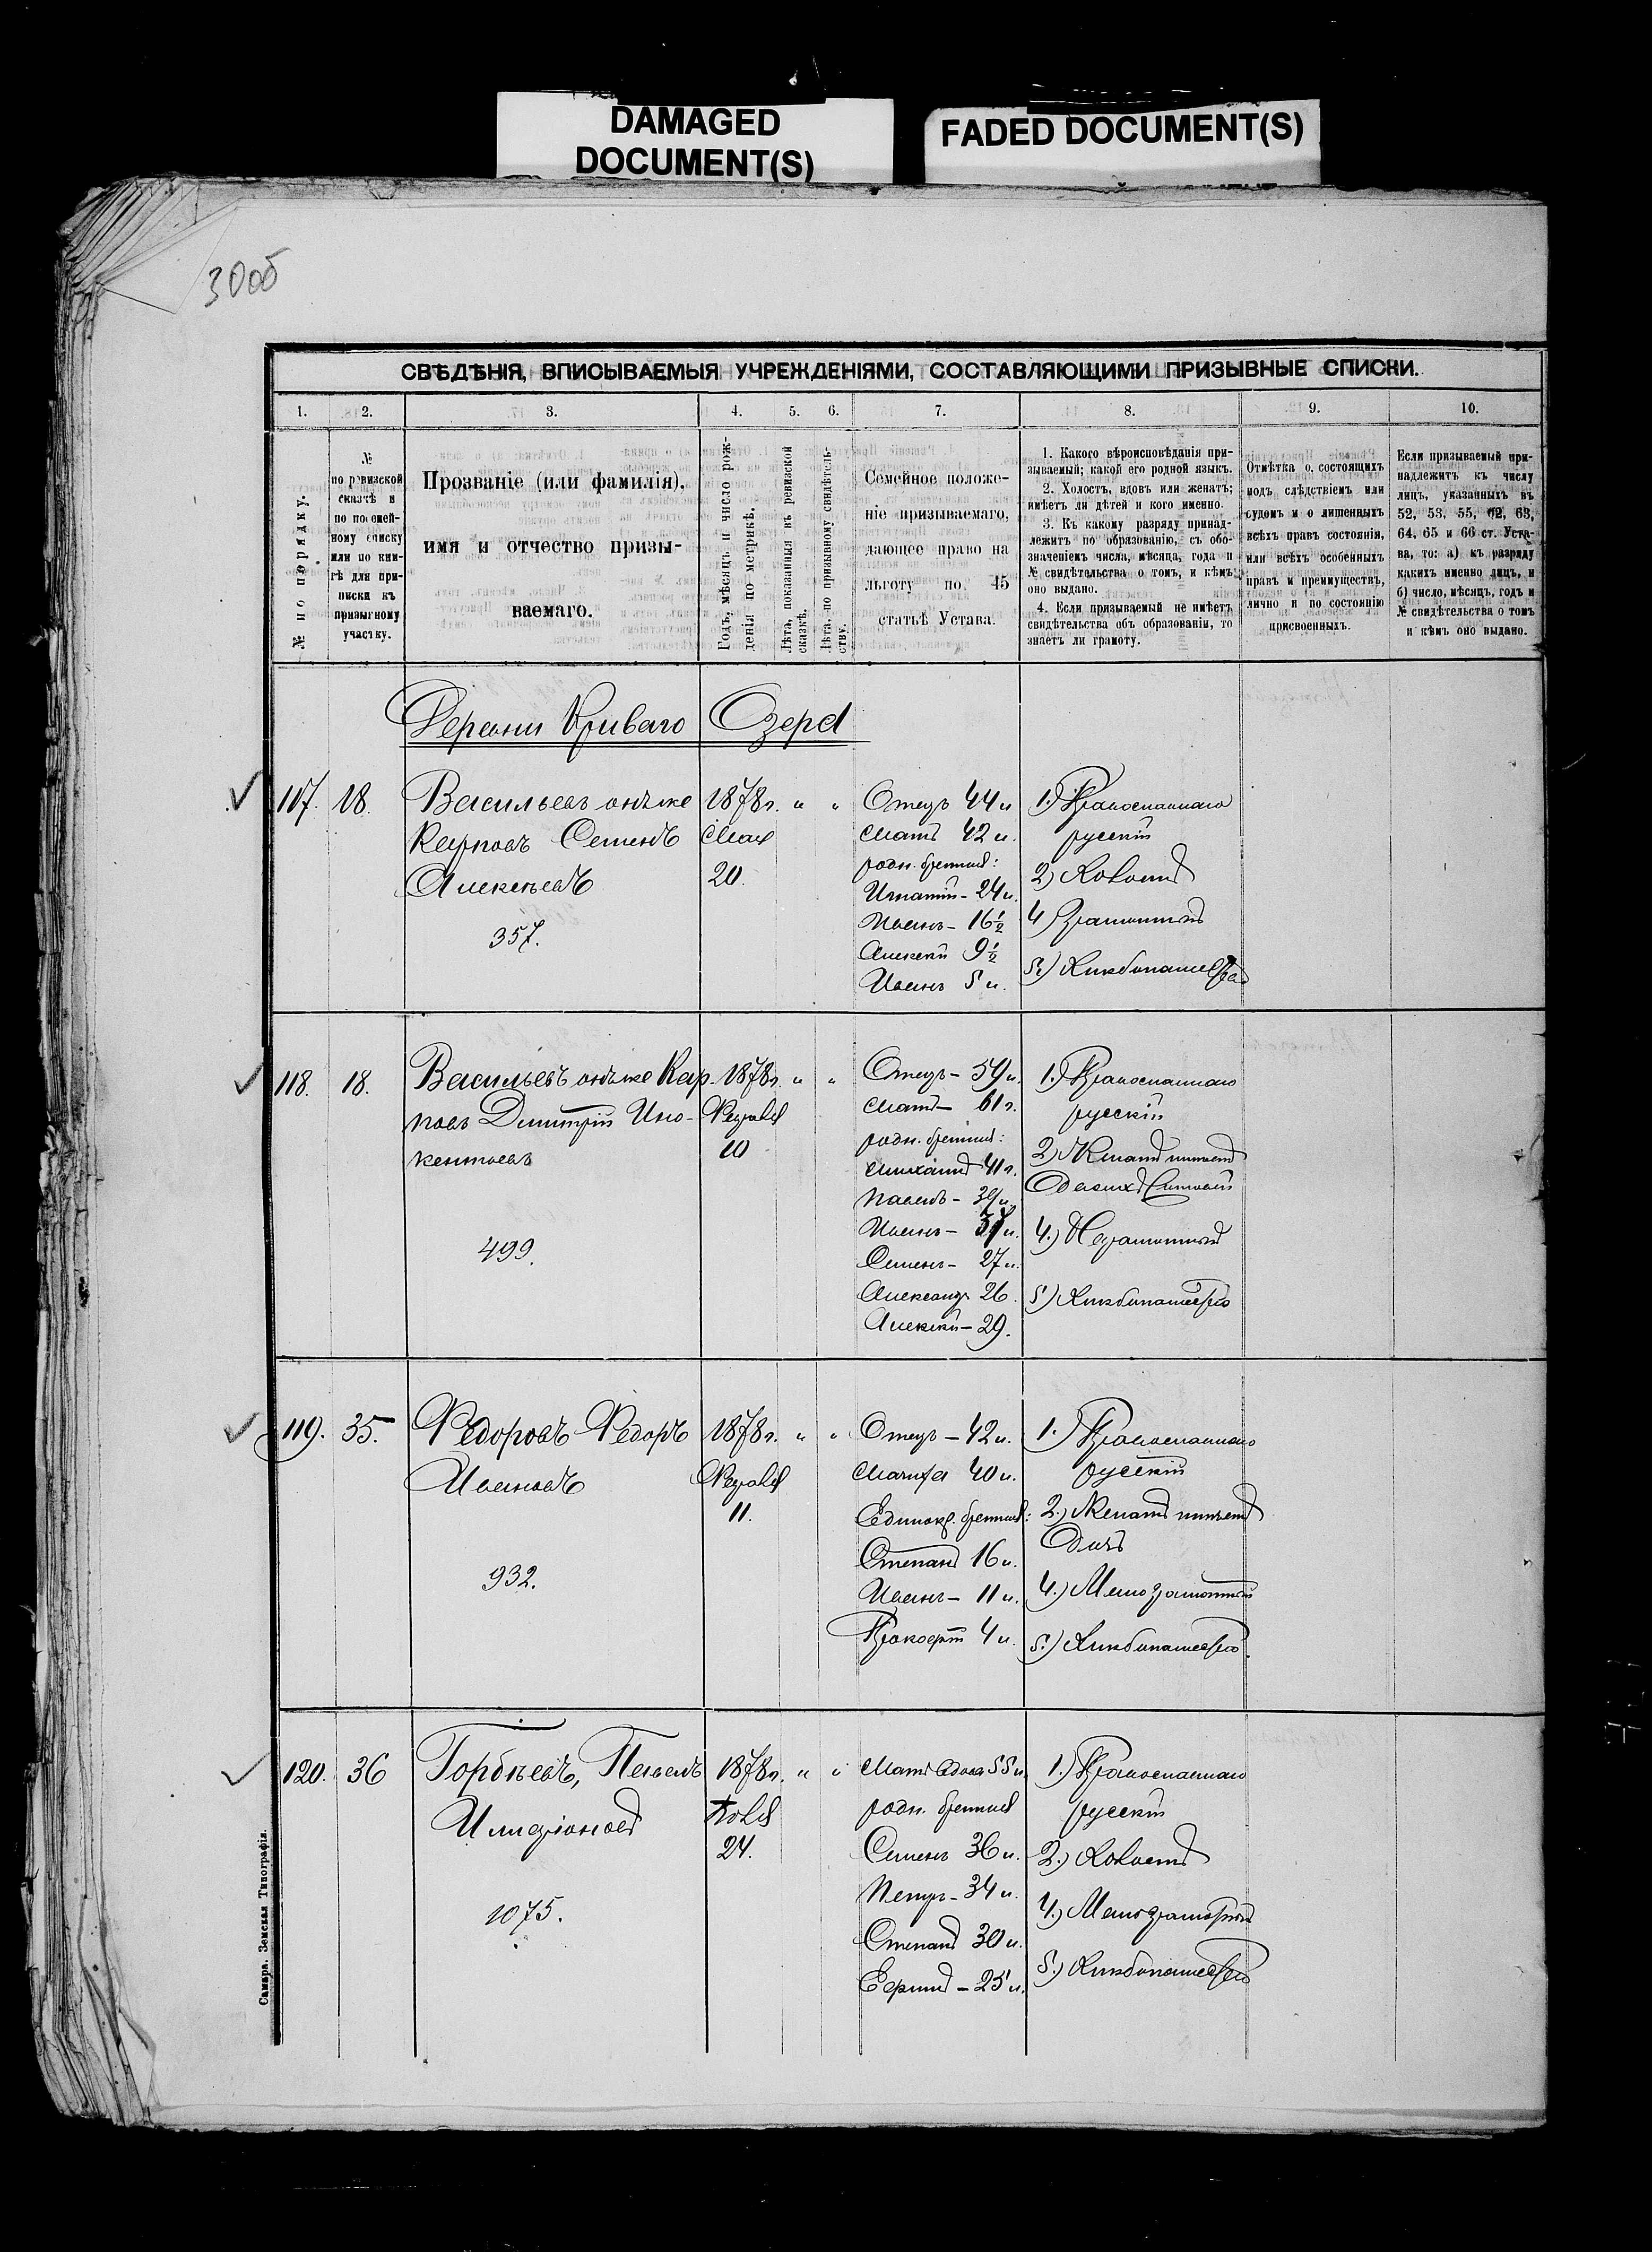 DAMAGED
DOCUMENT(S)
FADED DOCUMENT(S)
30об
СВѢДѢНІЯ, ВПИСЫВАЕМЫЯ УЧРЕЖДЕНІЯМИ, СОСТАВЛЯЮЩИМИ ПРИЗЫВНЫЕ СПИСКИ.
1. 2. 3. 4. 5. 6. 7. 8. 9. 10.
№ по порядку.
№
по ревизской
сказкѣ и
по посемей-
ному списку
или по кни-
гѣ для при-
писки къ
призывному
участку.
Прозваніе (или фамилія),
имя и отчество призы-
ваемаго.
Годъ, мѣсяцъ и число рож-
денія по метрикѣ.
Лѣта, показанныя въ ревизской
сказкѣ.
Лѣта, по призывному свидѣтель-
ству.
Семейное положе-
ніе призываемаго,
дающее право на
льготу по 45
статьѣ Устава.
1. Какого вѣроисповѣданія при-
зываемый; какой его родной языкъ.
2. Холостъ, вдовъ или женатъ;
имѣетъ ли дѣтей и кого именно.
3. Къ какому разряду принад-
лежитъ по образованію, съ обо-
значеніемъ числа, мѣсяца, года и
№ свидѣтельства о томъ, и кѣмъ
оно выдано.
4. Если призываемый не имѣетъ
свидѣтельства объ образованіи, то
знаетъ ли грамоту.
Отмѣтка о состоящихъ
подъ слѣдствіемъ или
судомъ и о лишенныхъ
всѣхъ правъ состоянія,
или всѣхъ особенныхъ
правъ и преимуществъ,
лично и по состоянію
присвоенныхъ.
Если призываемый при-
надлежитъ къ числу
лицъ, указанныхъ въ
52, 53, 55, 62, 63,
64, 65 и 66 ст. Уста-
ва, то: а) къ разряду
какихъ именно лицъ, и
б) число, мѣсяцъ, годъ и
№ свидѣтельства о томъ
и кѣмъ оно выдано.
Деревни Криваго Озера
117. 18.
Васильевъ онъже
Карповъ Семенъ
Алексѣевъ
357.
1878г. " "
Мая
20.
Отецъ 44 л
Мать 42 л.
родн. братья:
Игнатій - 24 л.
Иванъ - 16½
Алексѣй 9½
Иванъ 5 л.
1.) Православнаго
русскій
2) Холостъ
4) Грамотный
5.)
118. 18.
Васильевъ онъже Кар-
повъ Димитрій Ино-
кентьевъ
499.
1878г. " "
Февраля
10
Отецъ - 59 л.
Мать - 61 г.
родн. братья:
Михаилъ 41 г.
Павелъ - 39 л.
Иванъ - 37 л.
Семенъ - 27 л.
Александръ 26.
Алексѣй - 29.
1.) Православнаго
русскій
2) Женатъ имѣетъ
4.) Неграмотный
5)
119. 35.
Ѳедоровъ Ѳедоръ
Ивановъ
932.
1878г. " "
Февраля
11.
Отецъ - 42 л.
Мачиха 40 л.
Единокр. братья:
Степанъ 16 л.
Иванъ - 11 л.
Прокофій 4 л.
1.) Православнаго
русскій
2.) Женатъ имѣетъ
Дочь
4.) Малограмотный
5.)
120. 36
Горбѣевъ, Павелъ
Илларіоновъ
1075.
1878г. " "
24.
Мать вдова 55 л.
родн. братья
Семенъ 36 л.
Петръ - 34 л.
Степанъ 30 л.
Ефимъ - 25 л.
1.) Православнаго
русскій
2.) Холостъ
4.) Малограмотный
5.)
Самара. Земская Типографія.